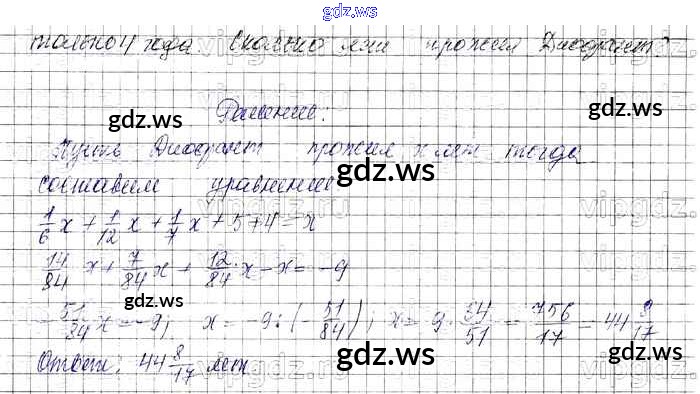 gdz.ws
только 4 года. Сколько лет прожил Диофант?
Решение:
Пусть Диофант прожил x лет тогда
составим уравнение
1/6 x + 1/12 x + 1/7 x + 5 + 4 = x
14/84 x + 7/84 x + 12/84 x - x = -9
-51/84 x = -9; x = -9 : (-51/84); x = 9 · 84/51 = 756/17 = 44 8/17
Ответ: 44 8/17 лет
gdz.ws
gdz.ws
gdz.ws
gdz.ws
gdz.ws
gdz.ws
gdz.ws
gdz.ws
vipgdz.ru